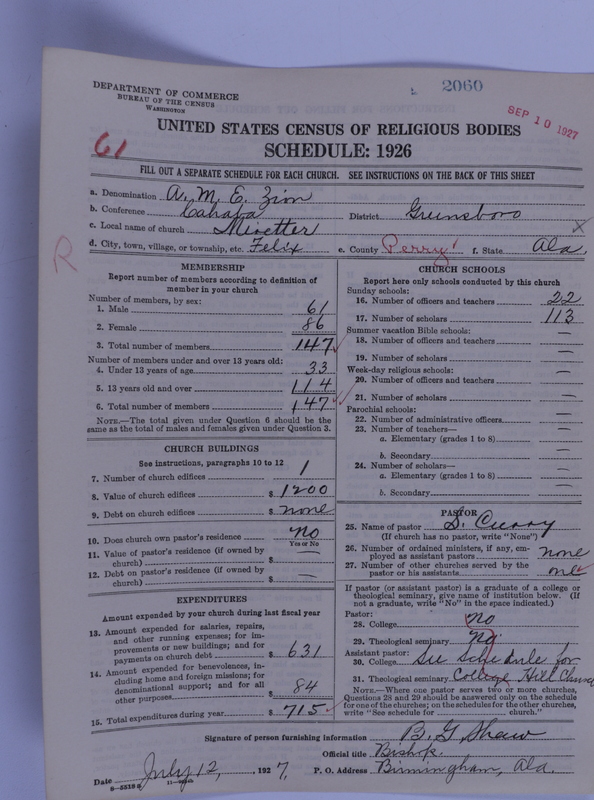 2060
SEP 10 1927
DEPARTMENT OF COMMERCE
BUREAU OF THE CENSUS
WASHINGTON
UNITED STATES CENSUS OF RELIGIOUS BODIES
61
SCHEDULE: 1926
FILL OUT A SEPARATE SCHEDULE FOR EACH CHURCH. SEE INSTRUCTIONS ON THE BACK OF THIS SHEET
a. Denomination A. M. E. Zion
b. Conference Cahaba District Greensboro
c. Local name of church
d. City, town, village, or township, etc. Felix e. County Perry f. State Ala.
R
MEMBERSHIP
Report number of members according to definition of
member in your church
Number of members, by sex:
1. Male 61
2. Female 86
3. Total number of members 147
Number of members under and over 13 years old:
4. Under 13 years of age 33
5. 13 years old and over 114
6. Total number of members 147
NOTE.—The total given under Question 6 should be
same as the total of males and females given under Question 3.
CHURCH BUILDINGS
See instructions, paragraphs 10 to 12
7. Number of church edifices 1
8. Value of church edifices $ 1200
9. Debt on church edifices $ none
10. Does church own pastor's residence no
Yes or No
11. Value of pastor's residence (if owned by
church) $ —
12. Debt on pastor's residence (if owned by
church) $ —
EXPENDITURES
Amount expended by your church during last fiscal year
13. Amount expended for salaries, repairs,
and other running expenses; for im-
provements or new buildings; and for
payments on church debt $ 631
14. Amount expended for benevolences, in-
cluding home and foreign missions; for
denominational support; and for all
other purposes $ 84
15. Total expenditures during year $ 715
CHURCH SCHOOLS
Report here only schools conducted by this church
Sunday schools:
16. Number of officers and teachers 22
17. Number of scholars 113
Summer vacation Bible schools:
18. Number of officers and teachers —
19. Number of scholars —
Week-day religious schools:
20. Number of officers and teachers —
21. Number of scholars —
Parochial schools:
22. Number of administrative officers —
23. Number of teachers—
a. Elementary (grades 1 to 8) —
b. Secondary —
24. Number of scholars—
a. Elementary (grades 1 to 8) —
b. Secondary —
PASTOR
25. Name of pastor S. Curry
(If church has no pastor, write "None")
26. Number of ordained ministers, if any, em-
ployed as assistant pastors none
27. Number of other churches served by the
pastor or his assistants one
If pastor (or assistant pastor) is a graduate of a college or
theological seminary, give name of institution below. (If
not a graduate, write "No" in the space indicated.)
Pastor:
28. College No
29. Theological seminary No
Assistant pastor:
30. College See Schedule for
31. Theological seminary College Hill Church
NOTE.—Where one pastor serves two or more churches,
Questions 28 and 29 should be answered only on the schedule
for one of the churches; on the schedules for the other churches,
write "See schedule for church."
Signature of person furnishing information B. G. Shaw
Official title Bishop.
Date July 12, 1927, P. O. Address Birmingham, Ala.